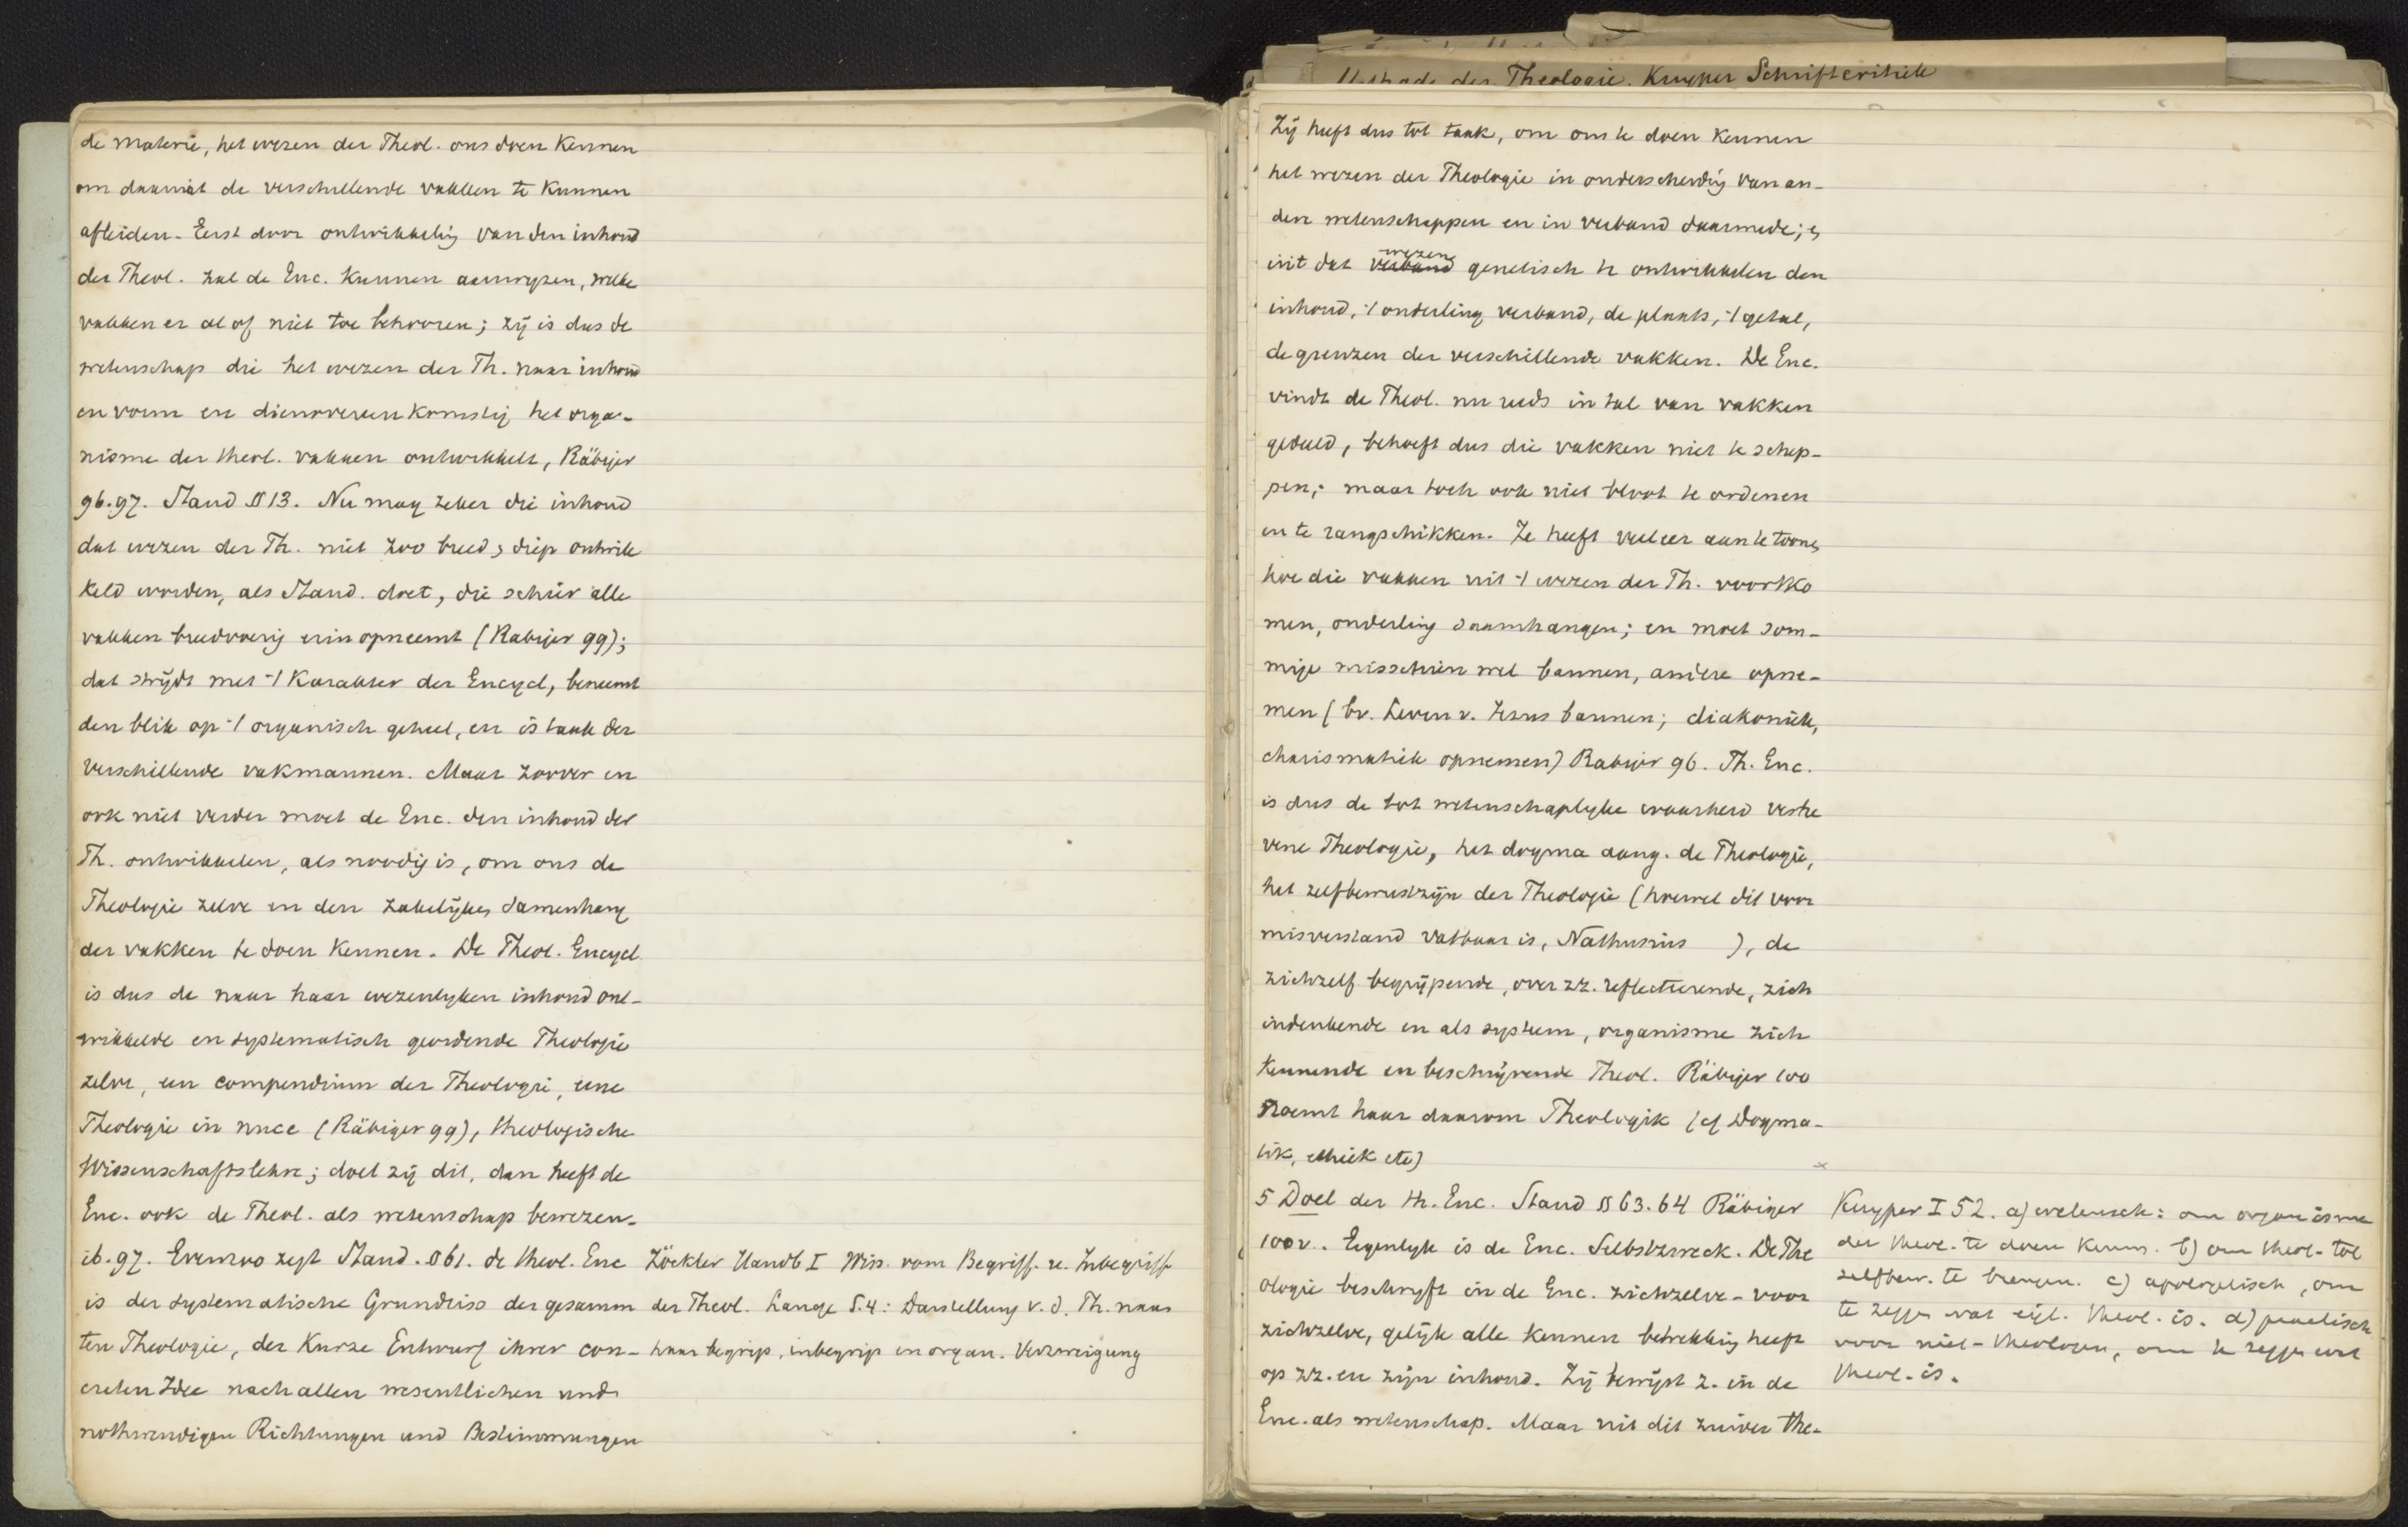 de materie, het wezen der Theol. ons doen kennen
om daaruit de verschillende vakken te kunnen
afleiden. Eerst door ontwikkeling van den inhoud
der Theol. zal de Enc. kunnen aanwyzen, welke
vakken er al of niet toe behooren; zij is dus de
wetenschap die het wezen der Th. naar inhoud
en vorm en dienovereenkomstig het orga-
nisme der theol. vakken ontwikkelt, Räbiger
96.97. Stand § 13. Nu mag zeker die inhoud
dat wezen der Th. niet zoo breed, diep ontwik
keld worden, als Stand. doet, die schier alle
vakken breedvoerig erin opneemt (Rabiger 99);
dat strijdt met -/ karakter der Encycl, beneemt
den blik op -/ organisch geheel, en is taak der
verschillende vakmannen. Maar zoover en
ook niet verder moet de Enc. den inhoud der
Th. ontwikkelen, als noodig is, om ons de
Theologie zelve en den zakelijken samenhang
der vakken te doen kennen. De Theol. Encycl
is dus de naar haar wezenlyken inhoud ont-
wikkelde en systematisch geordende Theologie
zelve, een compendium der Theologie, eene
Theologie in nuce (Räbiger 99), theologische
Wissenschaftslehre; doet zij dit, dan heeft de
Enc. ook de Theol. als wetenschap bewezen.
ib. 97. Evenzoo zegt Stand. § 61. de theol. Enc
is der systematische Grundriss der gesamm
ten Theologie, der Kurze Entwurf ihrer con-
creten Idee nach allen wesentlichen und
nothwendigen Richtungen und Bestimmungen
Zöckler Handb I Wiss. vom Begriff. u. Inbegriff
der Theol. Lange S.4: Darstellung v. d. Th. naar
haar begrip, inbegrip en organ. Verzweigung
Methode der Theologie. Kuyper Schriftcritiek
Zij heeft dus tot taak, om ons te doen kennen
het wezen der Theologie in onderscheiding van an-
dere wetenschappen en in verband daarmede; en
uit dat verband wezen genetisch te ontwikkelen den
inhoud, -/ onderling verband, de plaats, -/ getal,
de grenzen der verschillende vakken. De Enc.
vindt de Theol. nu reeds in tal van vakken
gedeeld, behoeft dus die vakken niet te schep-
pen; maar toch ook niet bloot te ordenen
en te rangschikken. Ze heeft veeleer aan te toonen
hoe die vakken uit -/ wezen der Th. voortko
men, onderling saamhangen; en moet som-
mige misschien wel bannen, andere opne-
men (bv. Leven v. Jezus bannen; diakoniek,
charismatiek opnemen) Rabiger 96. Th. Enc.
is dus de tot wetenschaplyke waarheid verhe
vene Theologie, het dogma aang. de Theologie,
het zelfbewustzijn der Theologie (hoewel dit voor
misverstand vatbaar is, Nathusius ), de
zichzelf begrijpende, over zz. reflecteerende, zich
indenkende en als systeem, organisme zich
kennende en beschrijvende Theol. Räbiger 100
noemt haar daarom Theologik (cf Dogma-
tik, ethiek etc)
5 Doel der th. Enc. Stand §§ 63.64 Räbiger
100v. Eigenlyk is de Enc. Selbstzweck. De The
ologie beschryft in de Enc. zichzelve - voor
zichzelve, gelijk alle kennen betrekking heeft
op zz. en zijn inhoud. Zij bewijst z. in de
Enc. als wetenschap. Maar uit dit zuiver the-
Kuyper I 52. a) wetensch: om organisme
der theol. te doen kenn. b) om theol. tot
zelfbew. te brengen. c) apologetisch, om
te zeggen wat eigl. theol. is. d) practisch
voor niet-theologen, om te zeggen wat
theol. is.